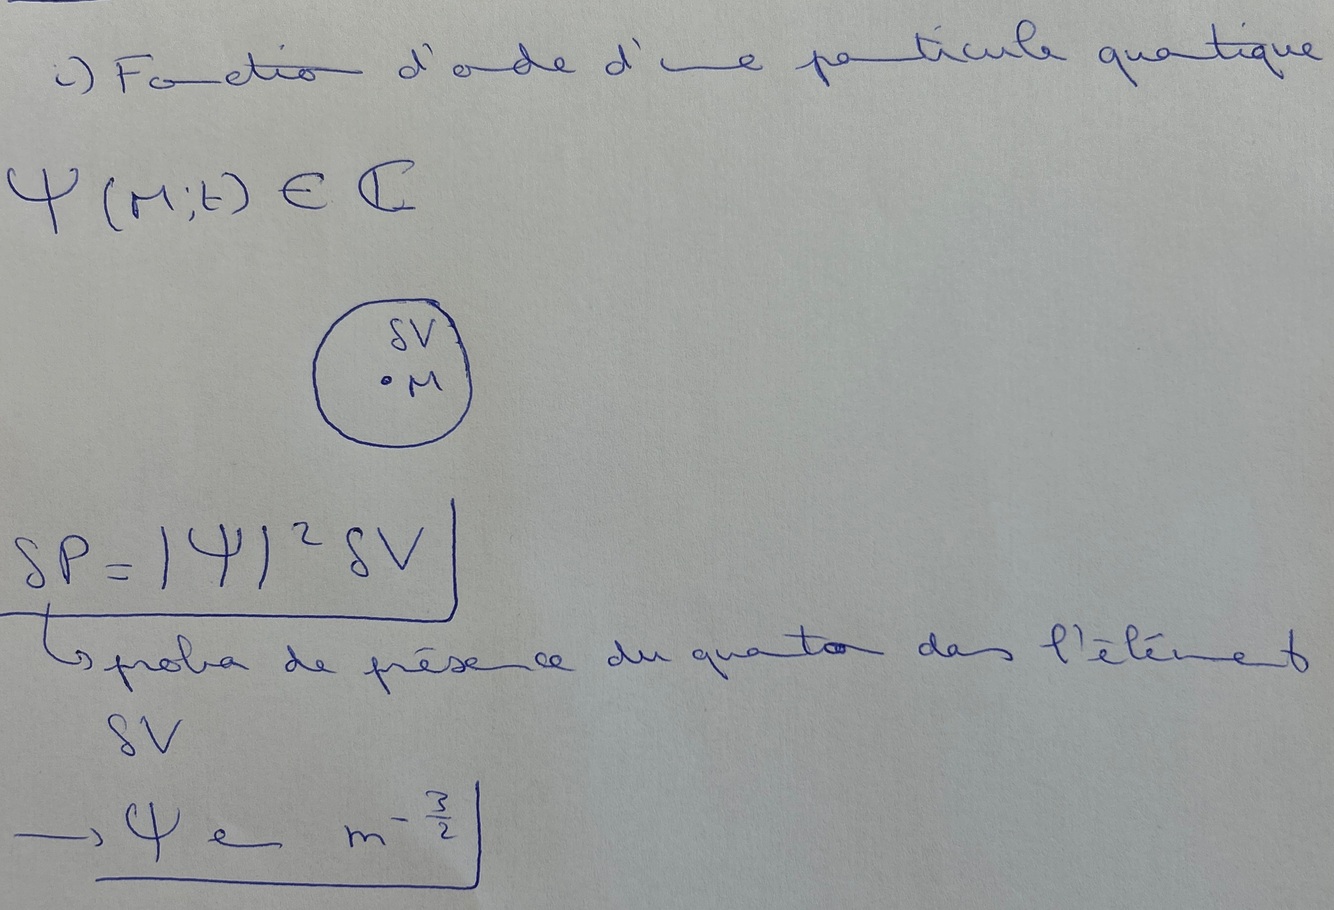 i) Fonction d'onde d'une particule quantique
Ψ (M;t) ∈ ℂ
δV
M
δP = |Ψ|² δV
↳ proba de présence du quanton dans l'élément
δV
→ Ψ en m^{-3/2}